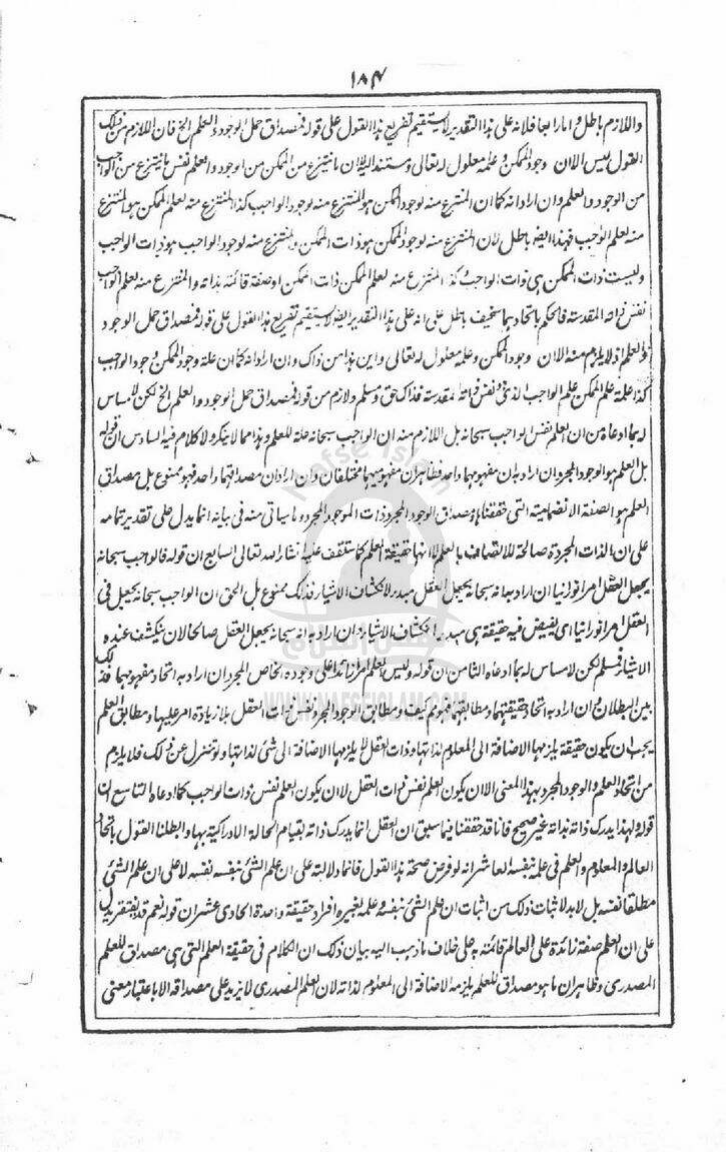 ۱۸۴
واللازم باطل واما رابعا فلانه على هذا التقدير لا يستقيم تفريع هذا القول على قوله فمصداق حمل الوجود والعلم الخ فان اللازم من ذلك
القول ليس الا ان وجود الممكن وعلمه معلول له تعالى ومستند اليه لا ان ما ينتزع من الممكن من الوجود والعلم نفس ما ينتزع من الواجب
من الوجود والعلم وان اراد انه كما ان المنتزع منه لوجود الممكن هو المنتزع منه لوجود الواجب كذا المنتزع منه لعلم الممكن هو المنتزع
منه لعلم الواجب فهذا ايضا باطل لان المنتزع منه لوجود الممكن هو ذات الممكن والمنتزع منه لوجود الواجب هو ذات الواجب
وليست ذات الممكن هى ذات الواجب وكذا المنتزع منه لعلم الممكن ذات الممكن او صفة قائمة بذاته والمنتزع منه لعلم الواجب
نفس ذاته المقدسة فالحكم باتحادهما سخيف باطل على انه على هذا التقدير ايضا لا يستقيم تفريع هذا القول على قوله فمصداق حمل الوجود
والعلم اذ لا يلزم منه الا ان وجود الممكن وعلمه معلول له تعالى واين هذا من ذاك وان اراد انه كما ان علة وجود الممكن وجود الواجب
كذا علة علم الممكن علم الواجب الذى هو نفس ذاته المقدسة فذاك حق ومسلم ولازم من قوله فمصداق حمل الوجود والعلم الخ لكن لا مساس
له بما ادعاه من ان العلم نفس الواجب سبحانه بل اللازم منه ان الواجب سبحانه علة للعلم وهذا مما لا ينكر ولا كلام فيه السادس ان قوله
بل العلم هو الوجود المجرد ان اراد به ان مفهومهما واحد فظاهر ان مفهوميهما مختلفان وان اراد ان مصداقهما واحد فهو ممنوع بل مصداق
العلم هو الصفة الانضمامية التى حققناها ومصداق الوجود المجرد ذات الموجود المجرد وما سياتى منه فى بيانه انما يدل على تقدير تمامه
على ان الذات المجردة صالحة للاتصاف بالعلم لا انها حقيقة العلم كما ستقف عليه انشاء الله تعالى السابع ان قوله فالواجب سبحانه
يجعل العقل امرا نورانيا ان اراد به انه سبحانه يجعل العقل مبدء لانكشاف الاشياء فذلك ممنوع بل الحق ان الواجب سبحانه يجعل فى
العقل امرا نورانيا اى يفيض فيه حقيقة هى مبدء لانكشاف الاشياء وان اراد به انه سبحانه يجعل العقل صالحا لان ينكشف عنده
الاشياء فمسلم لكن لا مساس له بما ادعاه الثامن ان قوله وليس العلم امرا زائدا على وجوده الخاص المجرد ان اراد به اتحاد مفهوميهما فذلك
بين البطلان وان اراد به اتحاد حقيقتهما ومطابقهما فممنوع كيف ومطابق الوجود المجرد نفس ذات العقل بلا زيادة امر عليها ومطابق العلم
يجب ان يكون حقيقة يلزمها الاضافة الى المعلوم لذاتها وذات العقل لا يلزمها الاضافة الى شئ لذاتها ولو تنزل عن ذلك فلا يلزم
من اتحاد العلم والوجود المجرد بهذا المعنى الا ان يكون العلم نفس ذات العقل لا ان يكون العلم نفس ذات الواجب كما ادعاه التاسع ان
قوله ولهذا يدرك ذاته بذاته غير صحيح فانا قد حققنا فيما سبق ان العقل انما يدرك ذاته بقيام الحالة الادراكية بها وابطلنا القول باتحاد
العالم والمعلوم والعلم فى علمه بنفسه العاشر انه لو فرض صحة هذا القول فانما دلالته على ان علم الشئ بنفسه نفسه لا على ان علم الشئ
مطلقا نفسه بل لا بد لاثبات ذلك من اثبات ان علم الشئ بنفسه وعلمه بغيره افراد حقيقة واحدة الحادى عشر ان قوله نعم قد يفتقر يدل
على ان العلم صفة زائدة على العالم قائمة به على خلاف ما ذهب اليه بيان ذلك ان الكلام فى حقيقة العلم التى هى مصداق للعلم
المصدرى وظاهر ان ما هو مصداق للعلم يلزمه الاضافة الى المعلوم لذاته لان العلم المصدرى لا يزيد على مصداقه الا باعتبار معنى
Nafse Islam
نفس اسلام
WWW.NAFSEISLAM.COM